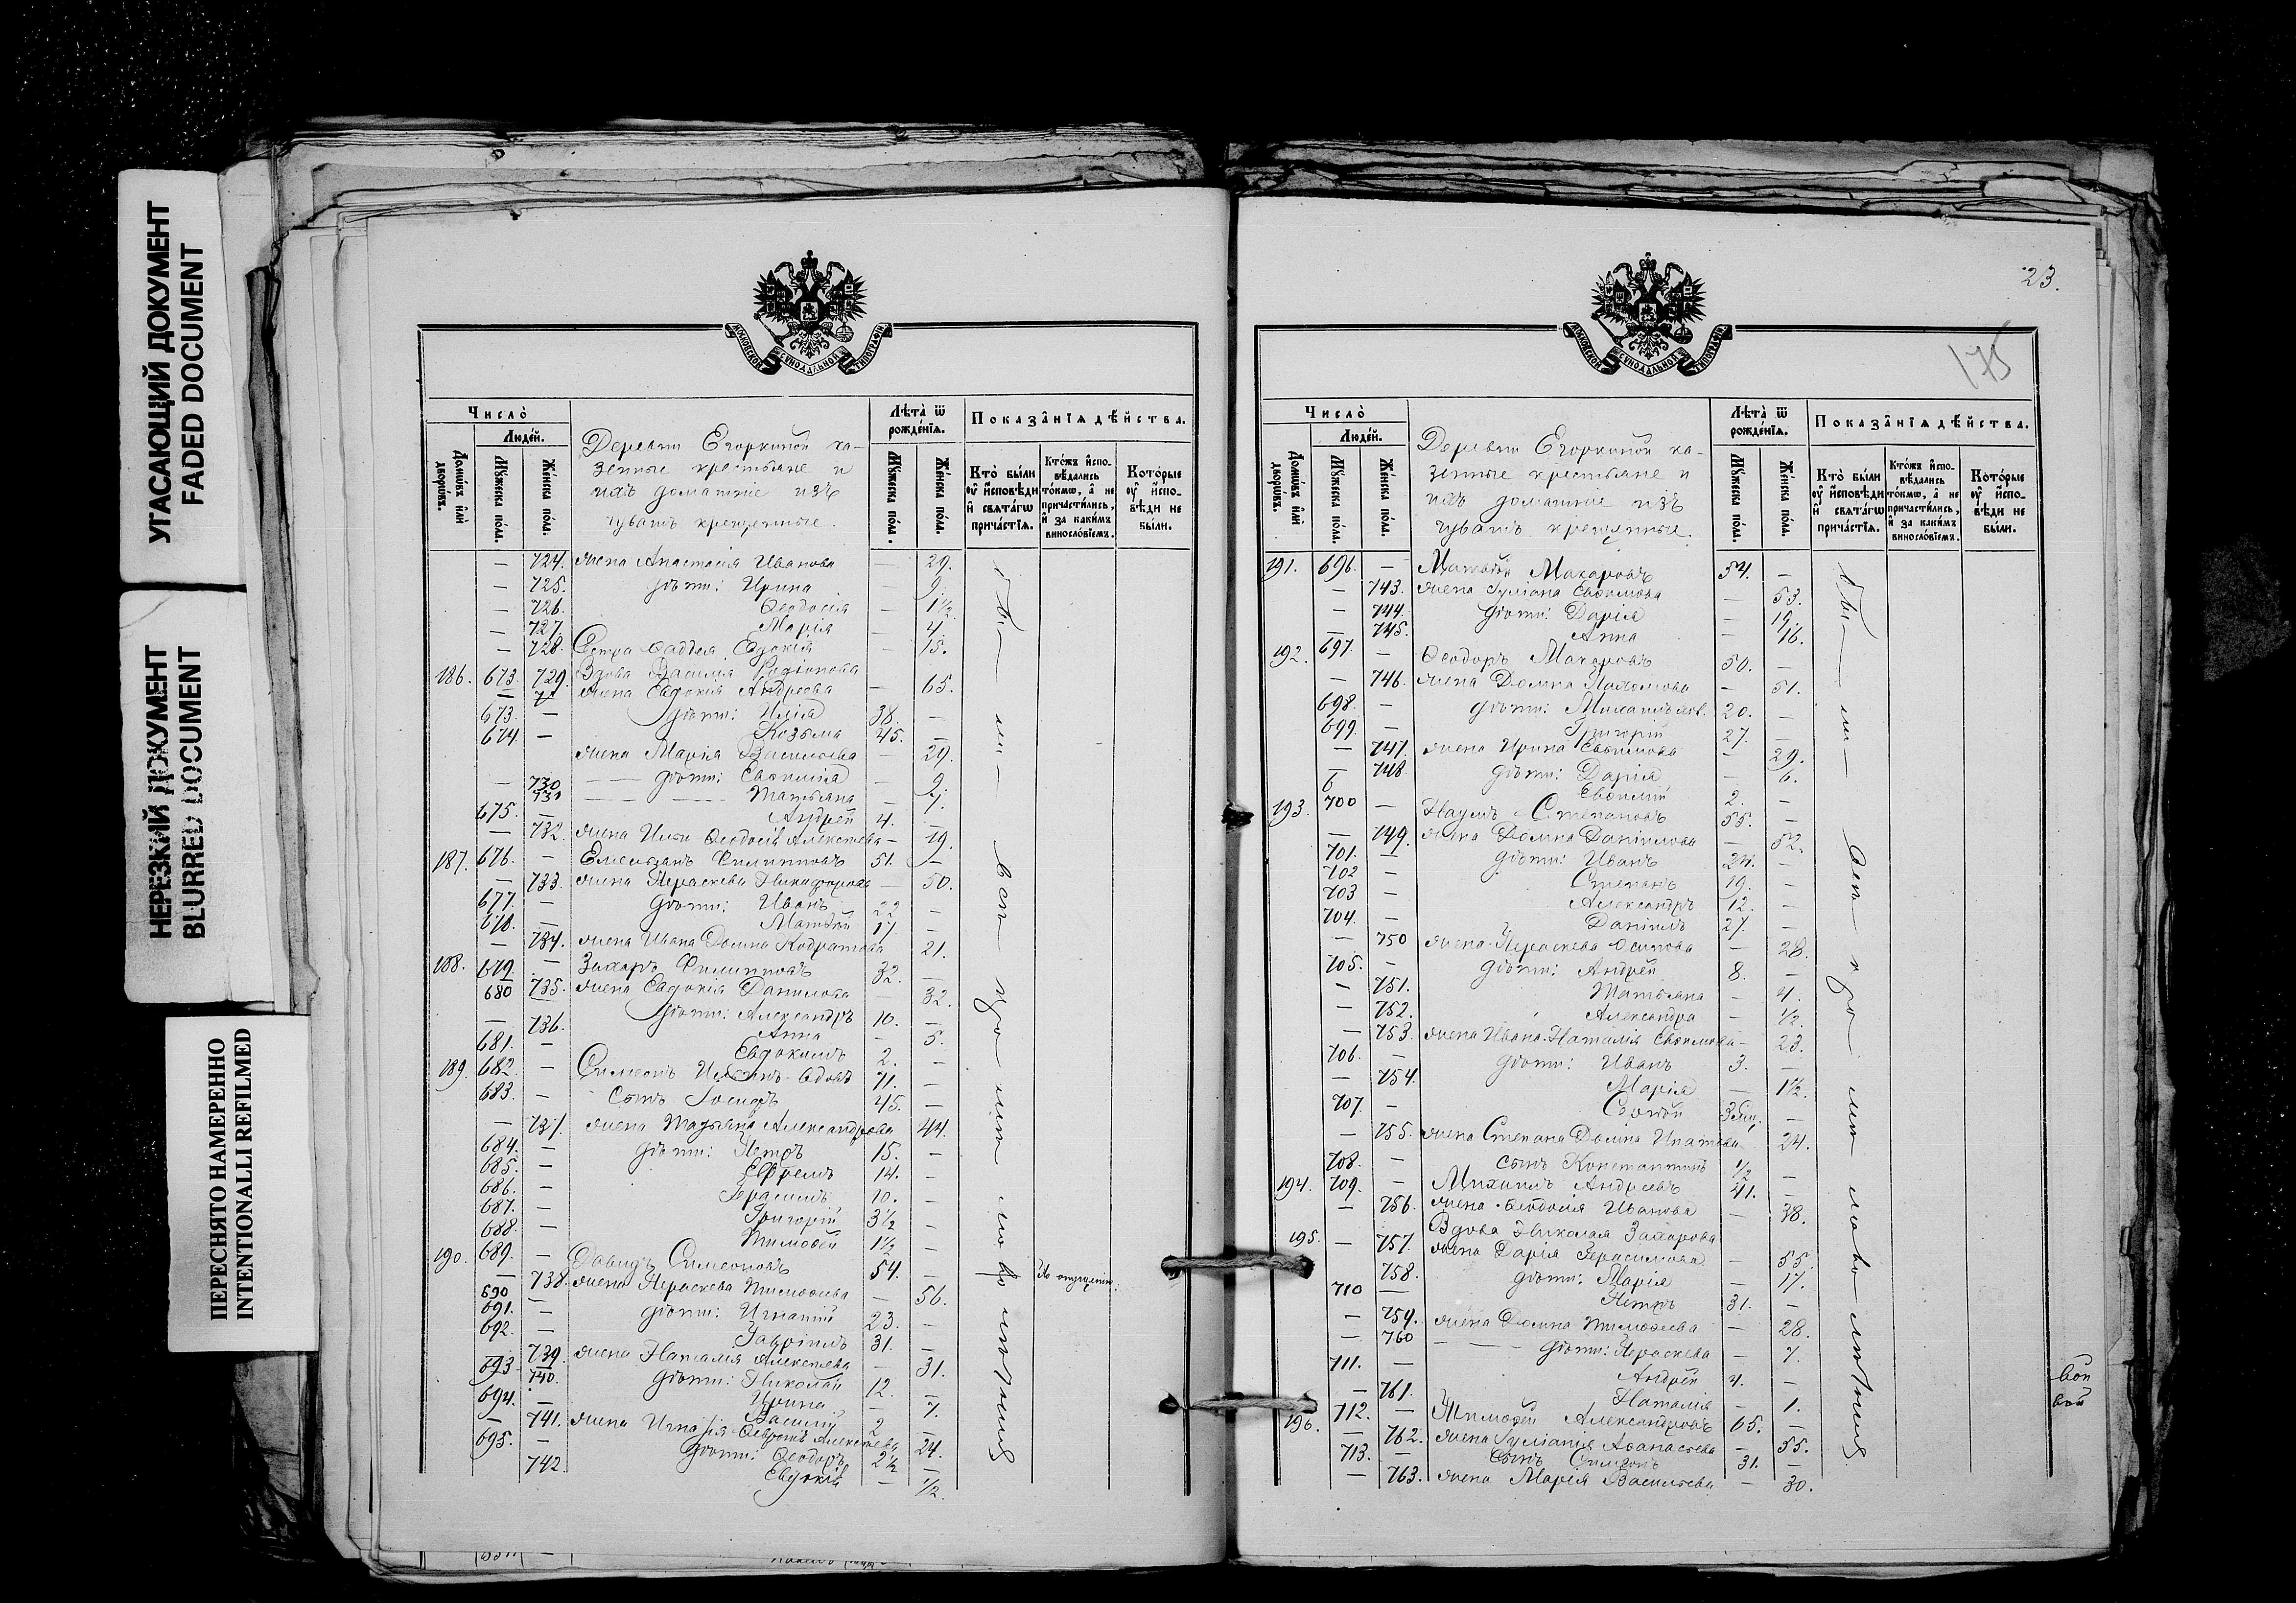 УГАСАЮЩИЙ ДОКУМЕНТ
FADED DOCUMENT
НЕРЕЗКИЙ ДОКУМЕНТ
BLURRED DOCUMENT
ПЕРЕСНЯТО НАМЕРЕННО
INTENTIONALLI REFILMED
МОСКОВСКОЙ СУНОДАЛЬНОЙ ТИПОГРАФІИ
Число̀
Людей.
Домѡвъ и҆лѝ дворѡвъ.
Мꙋжеска пола.
Женска пола.
Деревни Егоркиной ка-
зенные крестьяне и
ихъ домашніе изъ
чувашъ крещенные.
Лѣта̀ ѿ рожде́нїѧ.
Мꙋжеска пола.
Женска пола.
Показа̑нїѧ дѣ́йства.
Кто̀ бы́ли ᲂу҆ и҆́сповѣди и҆ свѧта́гѡ прича́стїѧ.
Кто́жъ и҆спо-вѣ́дались то́кмѡ, а҆ не причасти́лись, и҆ за каки́мъ винослові́емъ.
Кото́рые ᲂу҆ и҆́спо-вѣди не бы́ли.
— 724. жена Анастасія Иванова — 29.
— 725. дѣти: Ирина — 9.
— 726. Ѳеодосія — 1½
— 727. Марія — 4.
— 728. Сестра Фаддея Евдокія — 15.
186. 673. 729. Вдова Василія Родіонова
жена Евдокія Андреева — 65.
673. — дѣти: Илія 38. —
674 — Козьма 45. —
жена Марія Васильева — 29.
— 730 дѣти: Евѳимія — 9.
731 Татьяна — 7.
675. — Андрей 4. —
— 732. жена Иліи Ѳеодосія Алексѣева — 19.
187. 676. — Емельянъ Филипповъ 51. —
— 733. жена Параскева Никифорова — 50.
677. — дѣти: Иванъ 22 —
678. — Матѳей 17. —
— 734. жена Ивана Домна Кодратова 21.
188. 679. — Захаръ Филипповъ 32. —
680 735. жена Евдокія Данилова — 32.
дѣти: Александръ 10. —
— 736. Анна — 5.
681. — Евдокимъ 2. —
189. 682. — Симеонъ 71. —
683. — сынъ Іосифъ 45. —
— 737. жена Татьяна Александрова 44.
684. — дѣти: Петръ 15. —
685. — Ефремъ 14. —
686. — Герасимъ 10. —
687. — Григорій 3½ —
688. — Тимоѳей 1½ —
190. 689. — Давидъ Симеоновъ 54. —
— 738. жена Параскева Тимоѳеева — 56.
690
691. — дѣти: Игнатій 23. —
692. — Гавріилъ 31. —
— 739. жена Наталія Алексѣева — 31.
693. 740. дѣти: Николай 12. —
Ирина — 7.
694. — Василій 2 —
— 741. жена Игнатія Алексѣева 24.
695. — дѣти: Ѳеодоръ 2½ —
742. Евдокія — ½
Бы — ли — вси
23.
175
МОСКОВСКОЙ СУНОДАЛЬНОЙ ТИПОГРАФІИ
Число̀
Людей.
Домѡвъ и҆лѝ дворѡвъ.
Мꙋжеска пола.
Женска пола.
Деревни Егоркиной ка-
зенные крестьяне и
ихъ домашніе изъ
чувашъ крещенные.
Лѣта̀ ѿ рожде́нїѧ.
Мꙋжеска пола.
Женска пола.
Показа̑нїѧ дѣ́йства.
Кто̀ бы́ли ᲂу҆ и҆́сповѣди и҆ свѧта́гѡ прича́стїѧ.
Кто́жъ и҆спо-вѣ́дались то́кмѡ, а҆ не причасти́лись, и҆ за каки́мъ винослові́емъ.
Кото́рые ᲂу҆ и҆́спо-вѣди не бы́ли.
191. 696. — Матѳей Макаровъ 54. —
— 743. жена Іуліана Евѳимова — 53.
— 744. дѣти: Дарія — 19.
— 745. Анна — 16.
192. 697. — Ѳеодоръ Макаровъ 50. —
— 746. жена Домна Пахомова — 51.
698. — дѣти: 20. —
699. — Григорій 27. —
— 747. жена Ирина Евѳимова — 29.
— 748 дѣти: Дарія — 6.
6 Евѳимій 2. —
193. 700 — Наумъ Степановъ 55. —
— 749. жена Домна Даніилова — 52.
701. — дѣти: Иванъ 24. —
702 — Степанъ 19. —
703 — Александръ 12. —
704. — Даніилъ 27. —
— 750 жена Параскева Осипова — 28.
705. — дѣти: Андрей 8. —
— 751. Татьяна — 4.
— 752. Александра — ½.
— 753. жена Ивана Наталія Евѳимова — 23.
706. — дѣти: Иванъ 3. —
— 754. Марія — 1½.
707. —
— 755. жена Степана Домна Ипатова 24.
708. — сынъ Константинъ ½ —
194. 709. — Михаилъ Андреевъ 41. —
— 756. жена Ѳеодосія Иванова — 38.
195. — 757. Вдова Николая Захарова
жена Дарія Герасимова — 55.
758. дѣти: Марія — 17.
710 — Петръ 31. —
— 759. жена Домна Тимоѳеева — 28.
— 760 дѣти: Параскева — 7.
711. — Андрей 4. —
— 761. Наталія — 1.
196. 712. — Тимоѳей Александровъ 65. —
— 762. жена Іуліанія Аѳанасьева — 55.
713. — сынъ Симеонъ 31. —
— 763. жена Марія Васильева — 30.
Бы — ли —